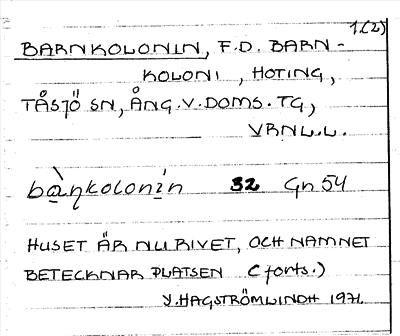 1(2)
BARNKOLONIN, F.D. BARN-
KOLONI, HOTING,
TÅSJÖ SN, ÅNG.V.DOMS.TG,
VRNL.L.
bàɳkolonin 32 Gn 54
HUSET ÄR NU RIVET, OCH NAMNET
BETECKNAR PLATSEN (forts.)
Y.HAGSTRÖMLINDH 1971.